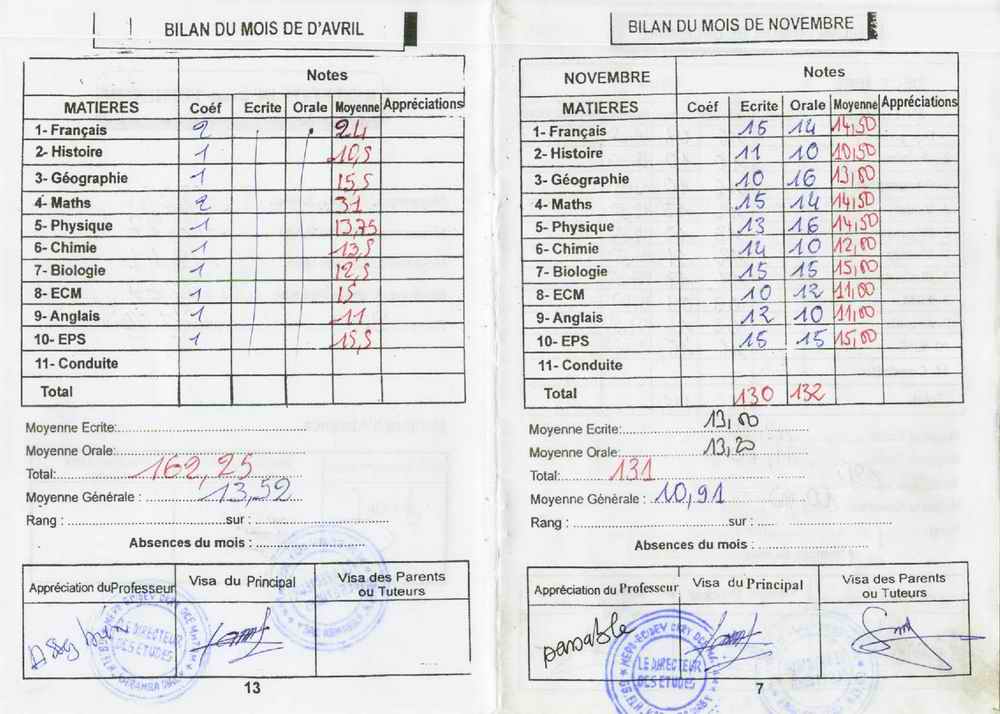 BILAN DU MOIS DE D'AVRIL
Notes
MATIERES Coéf Ecrite Orale Moyenne Appréciations
1- Français 2 24
2- Histoire 1 10,5
3- Géographie 1 15,5
4- Maths 2 31
5- Physique 1 13,75
6- Chimie 1 13,5
7- Biologie 1 12,5
8- ECM 1 15
9- Anglais 1 11
10- EPS 1 15,5
11- Conduite
Total
Moyenne Ecrite:
Moyenne Orale:
Total: 162,25
Moyenne Générale : 13,52
Rang : sur :
Absences du mois :
Appréciation du Professeur Visa du Principal Visa des Parents ou Tuteurs
Assez bien
LE DIRECTEUR
DES ETUDES
13
BILAN DU MOIS DE NOVEMBRE
NOVEMBRE Notes
MATIERES Coéf Ecrite Orale Moyenne Appréciations
1- Français 15 14 14,50
2- Histoire 11 10 10,50
3- Géographie 10 16 13,00
4- Maths 15 14 14,50
5- Physique 13 16 14,50
6- Chimie 14 10 12,00
7- Biologie 15 15 15,00
8- ECM 10 12 11,00
9- Anglais 12 10 11,00
10- EPS 15 15 15,00
11- Conduite
Total 130 132
Moyenne Ecrite: 13,00
Moyenne Orale: 13,20
Total: 131
Moyenne Générale : 10,91
Rang : sur :
Absences du mois :
Appréciation du Professeur Visa du Principal Visa des Parents ou Tuteurs
passable
LE DIRECTEUR
DES ETUDES
7